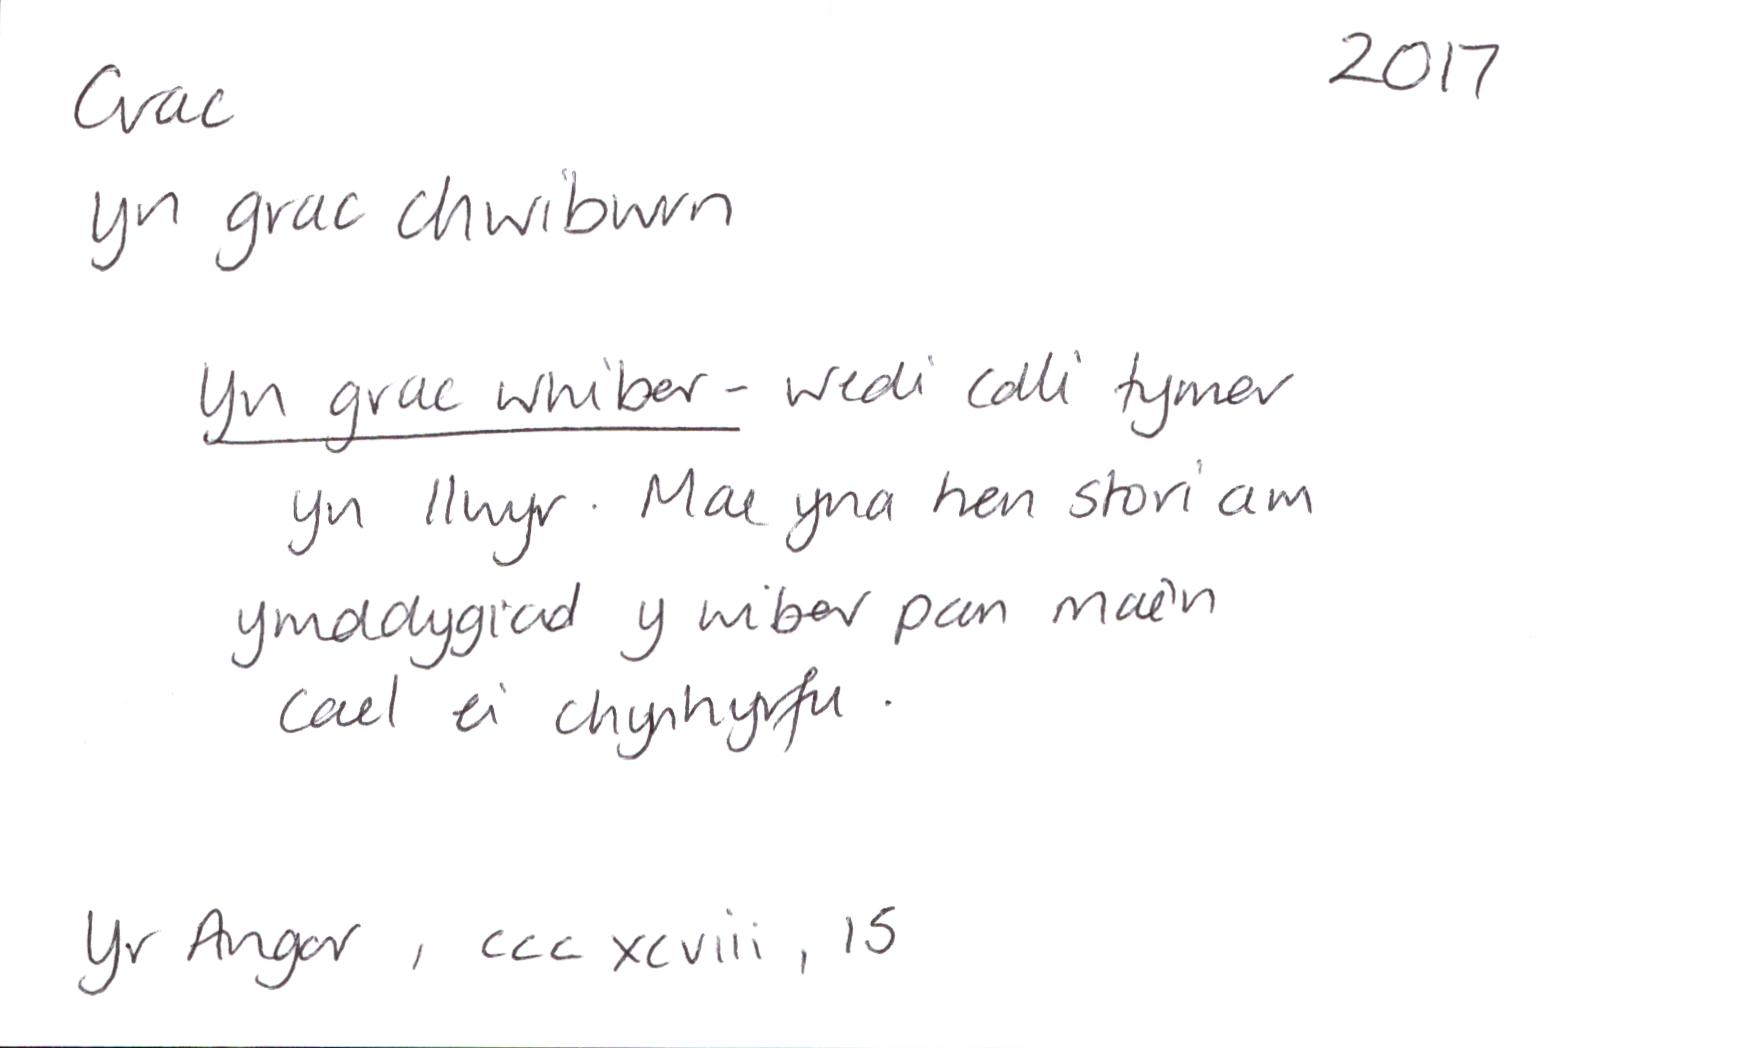 Crac 2017
yn grac chwibwrn
Yn grac whiber - wedi colli tymer
yn llwyr. Mae yna hen stori am
ymddygiad y wiber pan mae'n
cael ei chynhyrfu.
Yr Angor, cccxcviii, 15